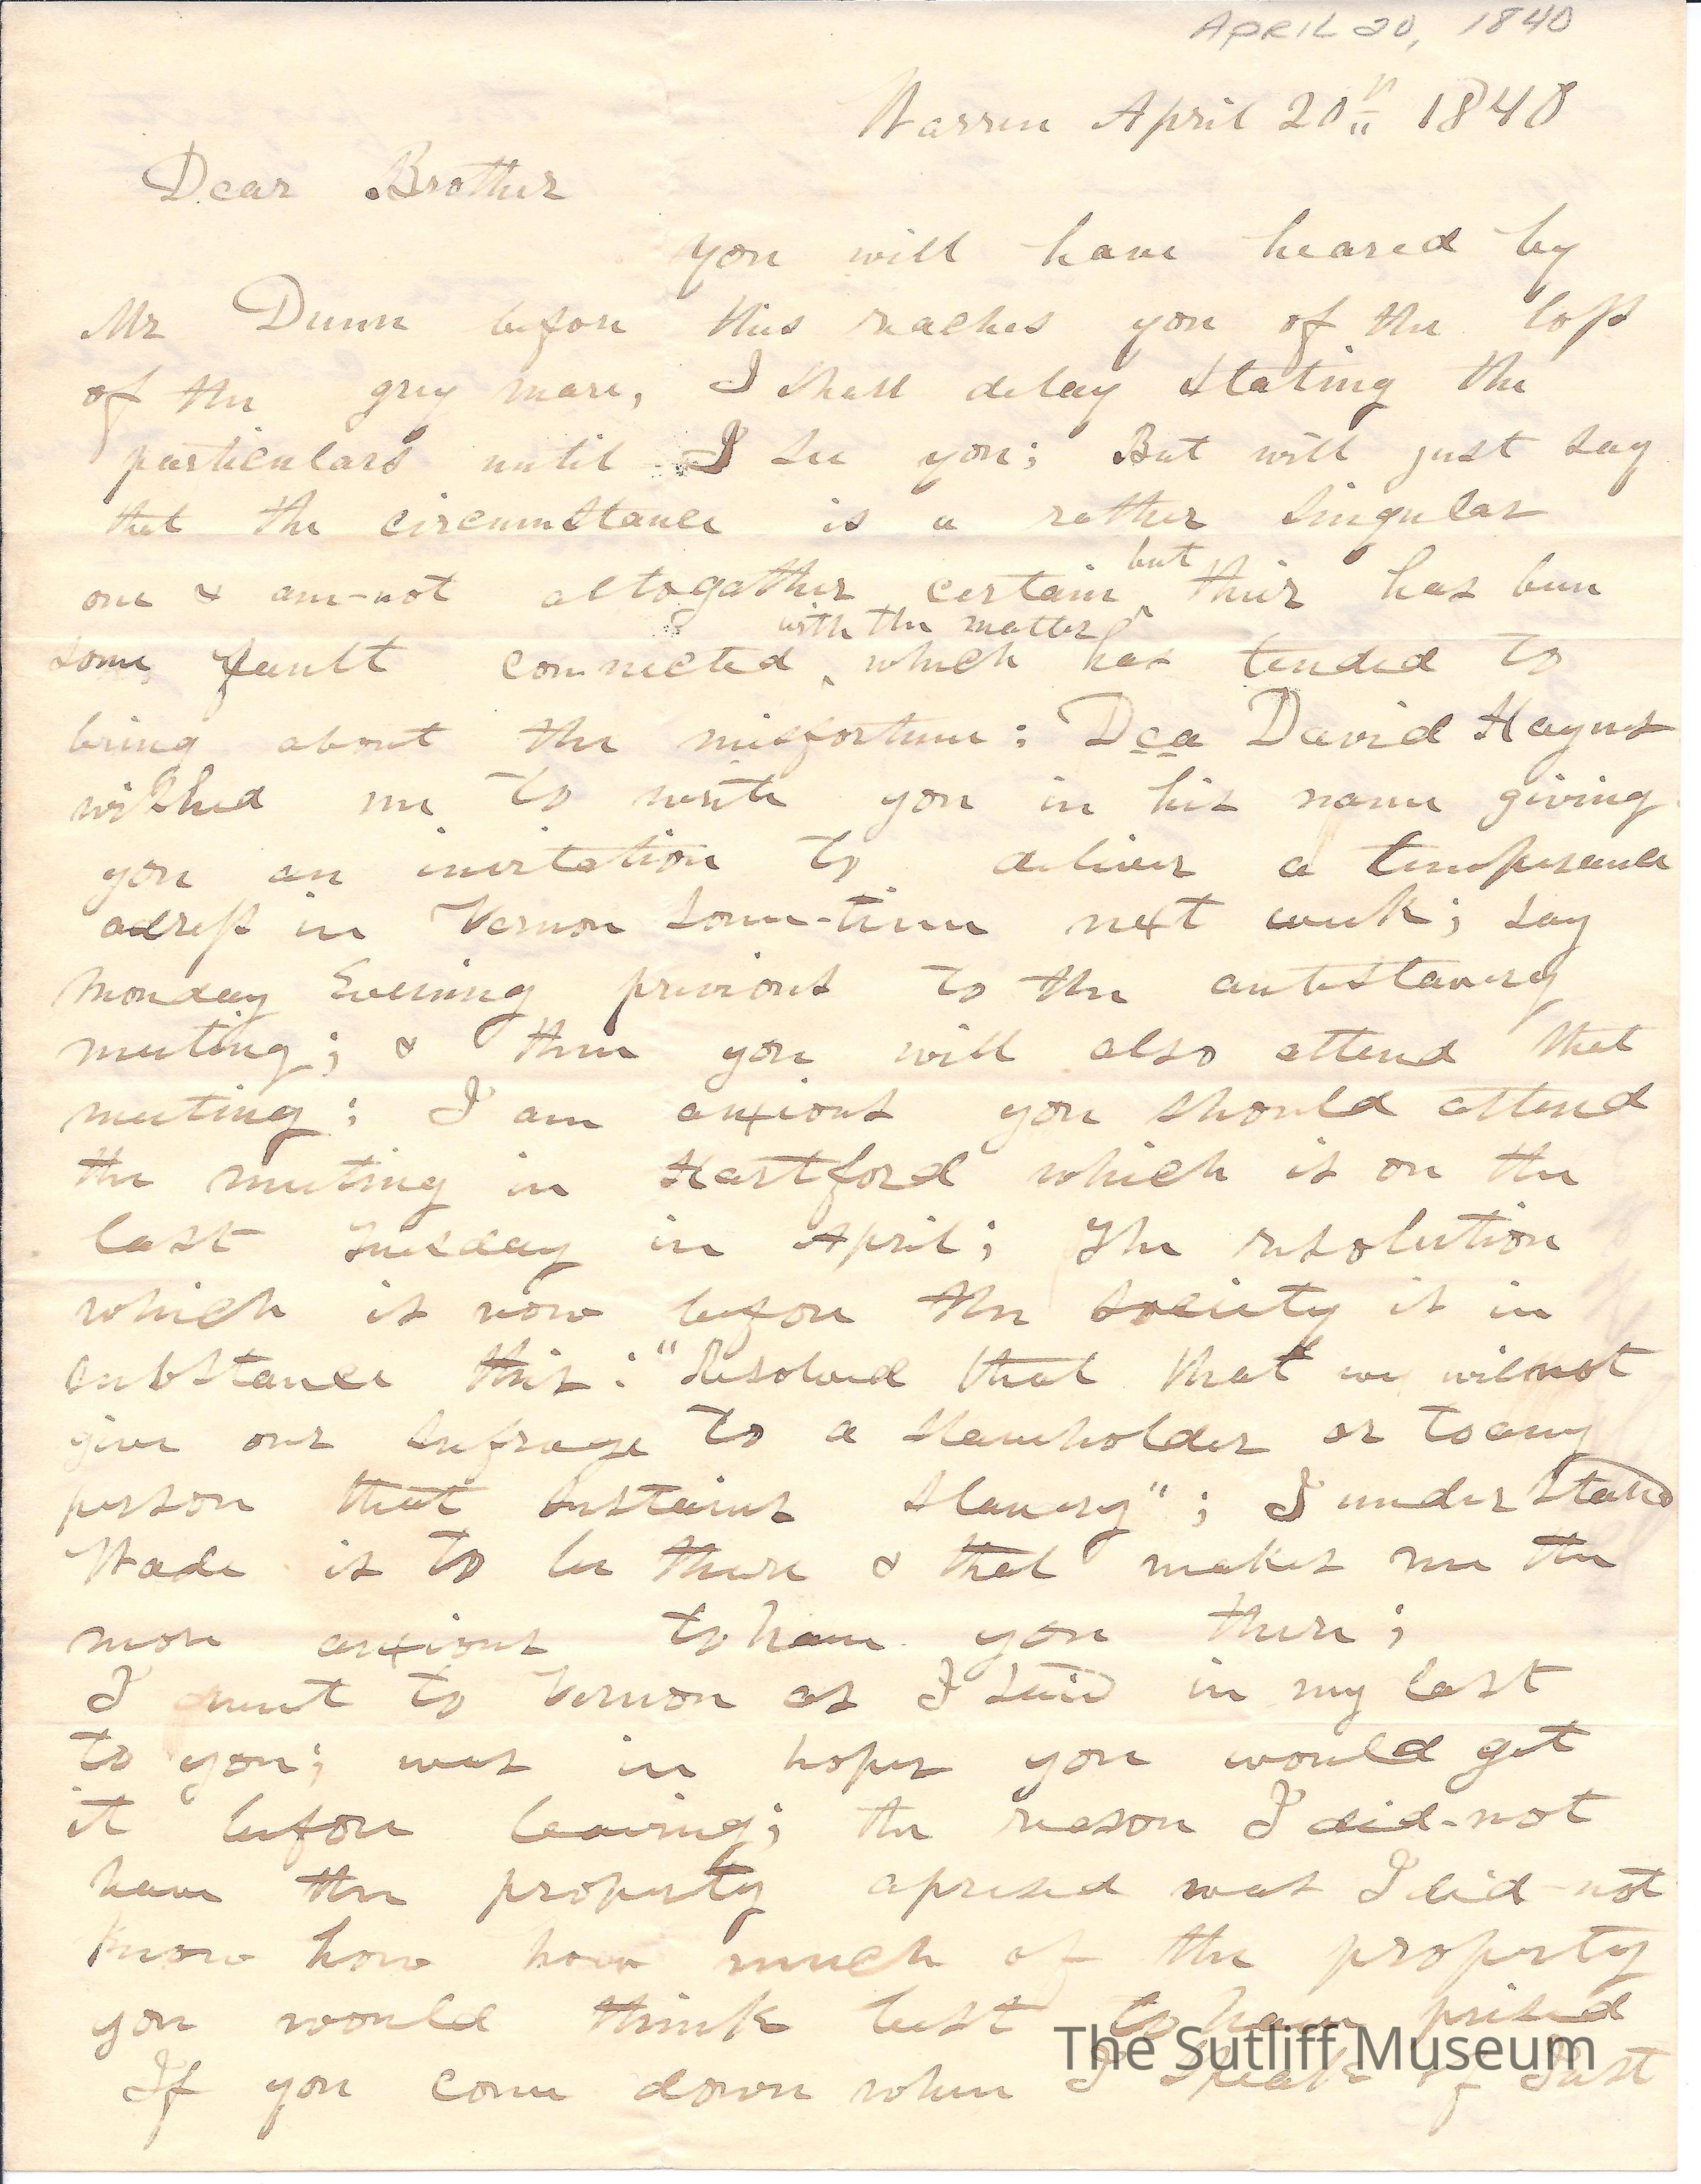 APRIL 20, 1840
Warren April 20th 1840
Dear Brother
you will have heared by
Mr Dunn before this reaches you of the loss
of the grey mare, I shall delay stating the
particulars until I see you; But will just say
that the circumstance is a rather singular
one & am-not altogather certain but thier has been
some fault connected with the matter which has tended to
bring about the misfortune: Dea David Haynes
wishhed me to write you in his name giving
you an invitation to deliver a temperance
adress in Vernon some-time next week; say
Monday Evening previous to the antislavery
meeting; & then you will also attend that
meeting: I am anxious you should attend
the meeting in Hartford which is on the
last Tuesday in April; The resolution
which is now before the society is in
substance this: "Resolved that that we will not
give our sufrage to a slaveholder or to any
person that sustains slavery"; I understand
Wade is to be there & that makes me the
more anxious to have you there;
I went to Vernon as I said in my last
to you; was in hopes you would get
it before leaving; the reason I did-not
have the property aprised was I did-not
know how how much of the property
you would think best to have prised
If you come down when I speak of Just
The Sutliff Museum